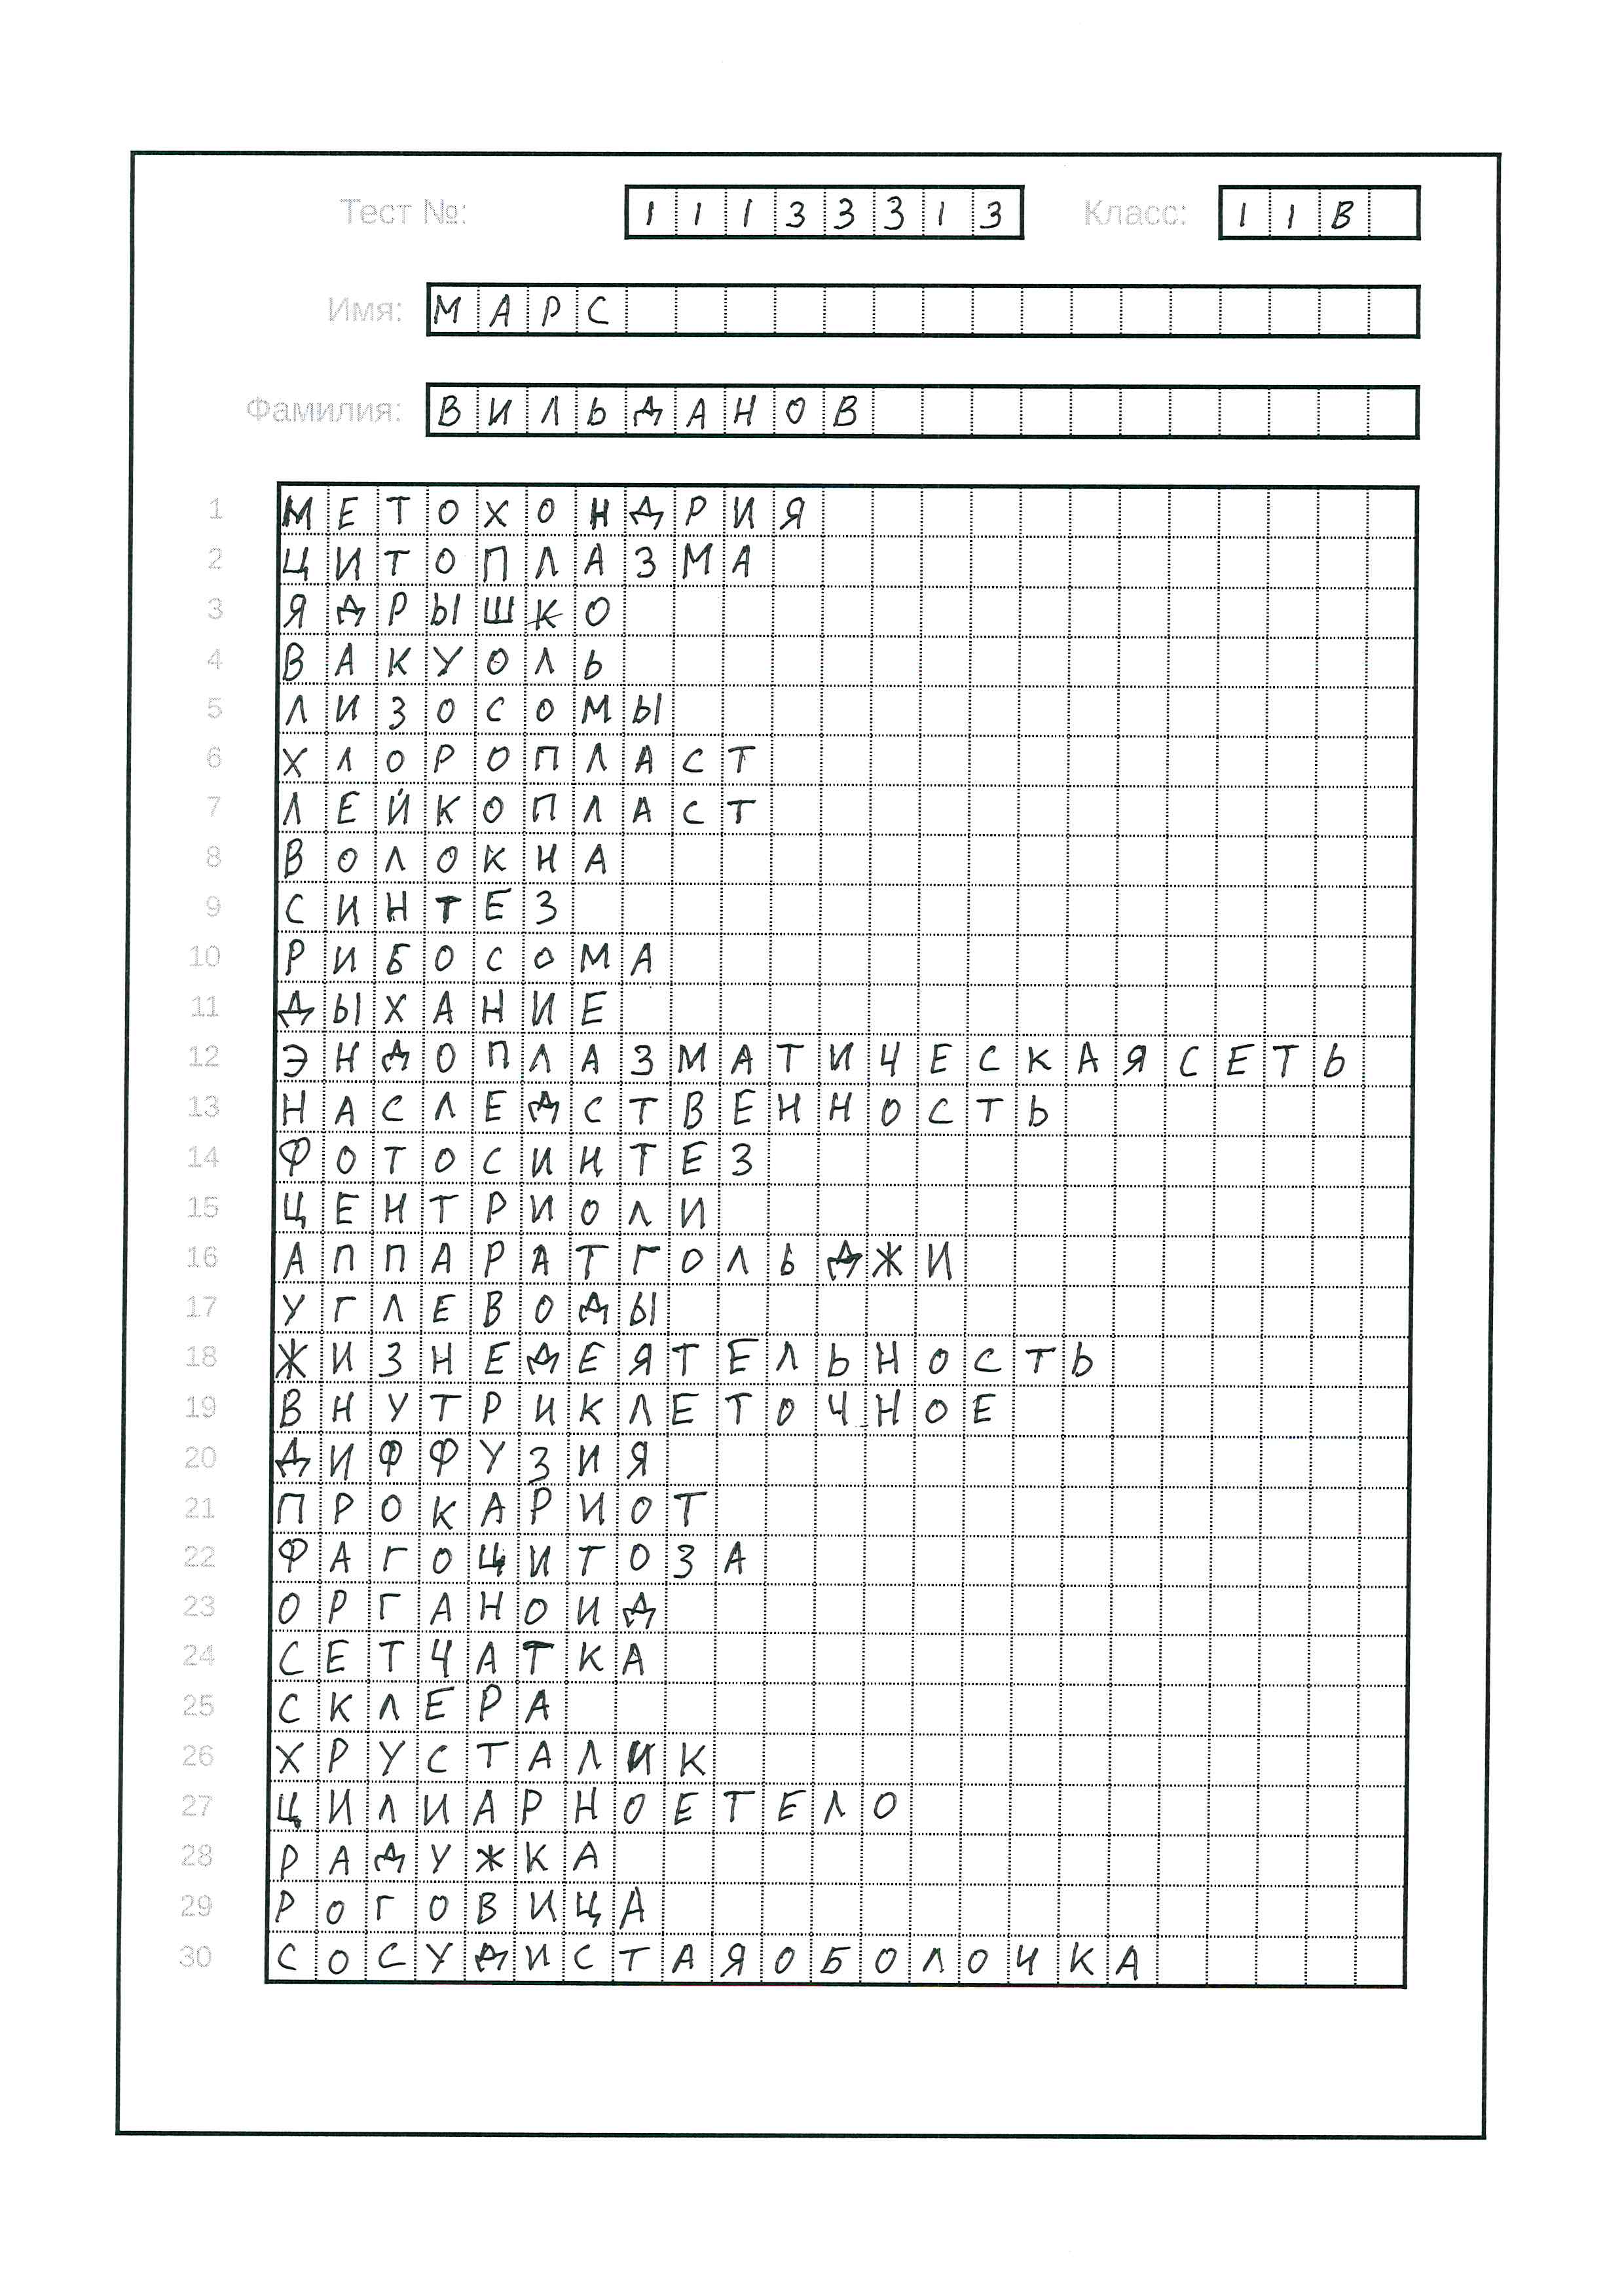 Тест №: 11133313 Класс: 11В
Имя: МАРС
Фамилия: ВИЛЬДАНОВ
1 МЕТОХОНДРИЯ
2 ЦИТОПЛАЗМА
3 ЯДРЫШКО
4 ВАКУОЛЬ
5 ЛИЗОСОМЫ
6 ХЛОРОПЛАСТ
7 ЛЕЙКОПЛАСТ
8 ВОЛОКНА
9 СИНТЕЗ
10 РИБОСОМА
11 ДЫХАНИЕ
12 ЭНДОПЛАЗМАТИЧЕСКАЯСЕТЬ
13 НАСЛЕДСТВЕННОСТЬ
14 ФОТОСИНТЕЗ
15 ЦЕНТРИОЛИ
16 АППАРАТГОЛЬДЖИ
17 УГЛЕВОДЫ
18 ЖИЗНЕДЕЯТЕЛЬНОСТЬ
19 ВНУТРИКЛЕТОЧНОЕ
20 ДИФФУЗИЯ
21 ПРОКАРИОТ
22 ФАГОЦИТОЗА
23 ОРГАНОИД
24 СЕТЧАТКА
25 СКЛЕРА
26 ХРУСТАЛИК
27 ЦИЛИАРНОЕТЕЛО
28 РАДУЖКА
29 РОГОВИЦА
30 СОСУДИСТАЯОБОЛОЧКА